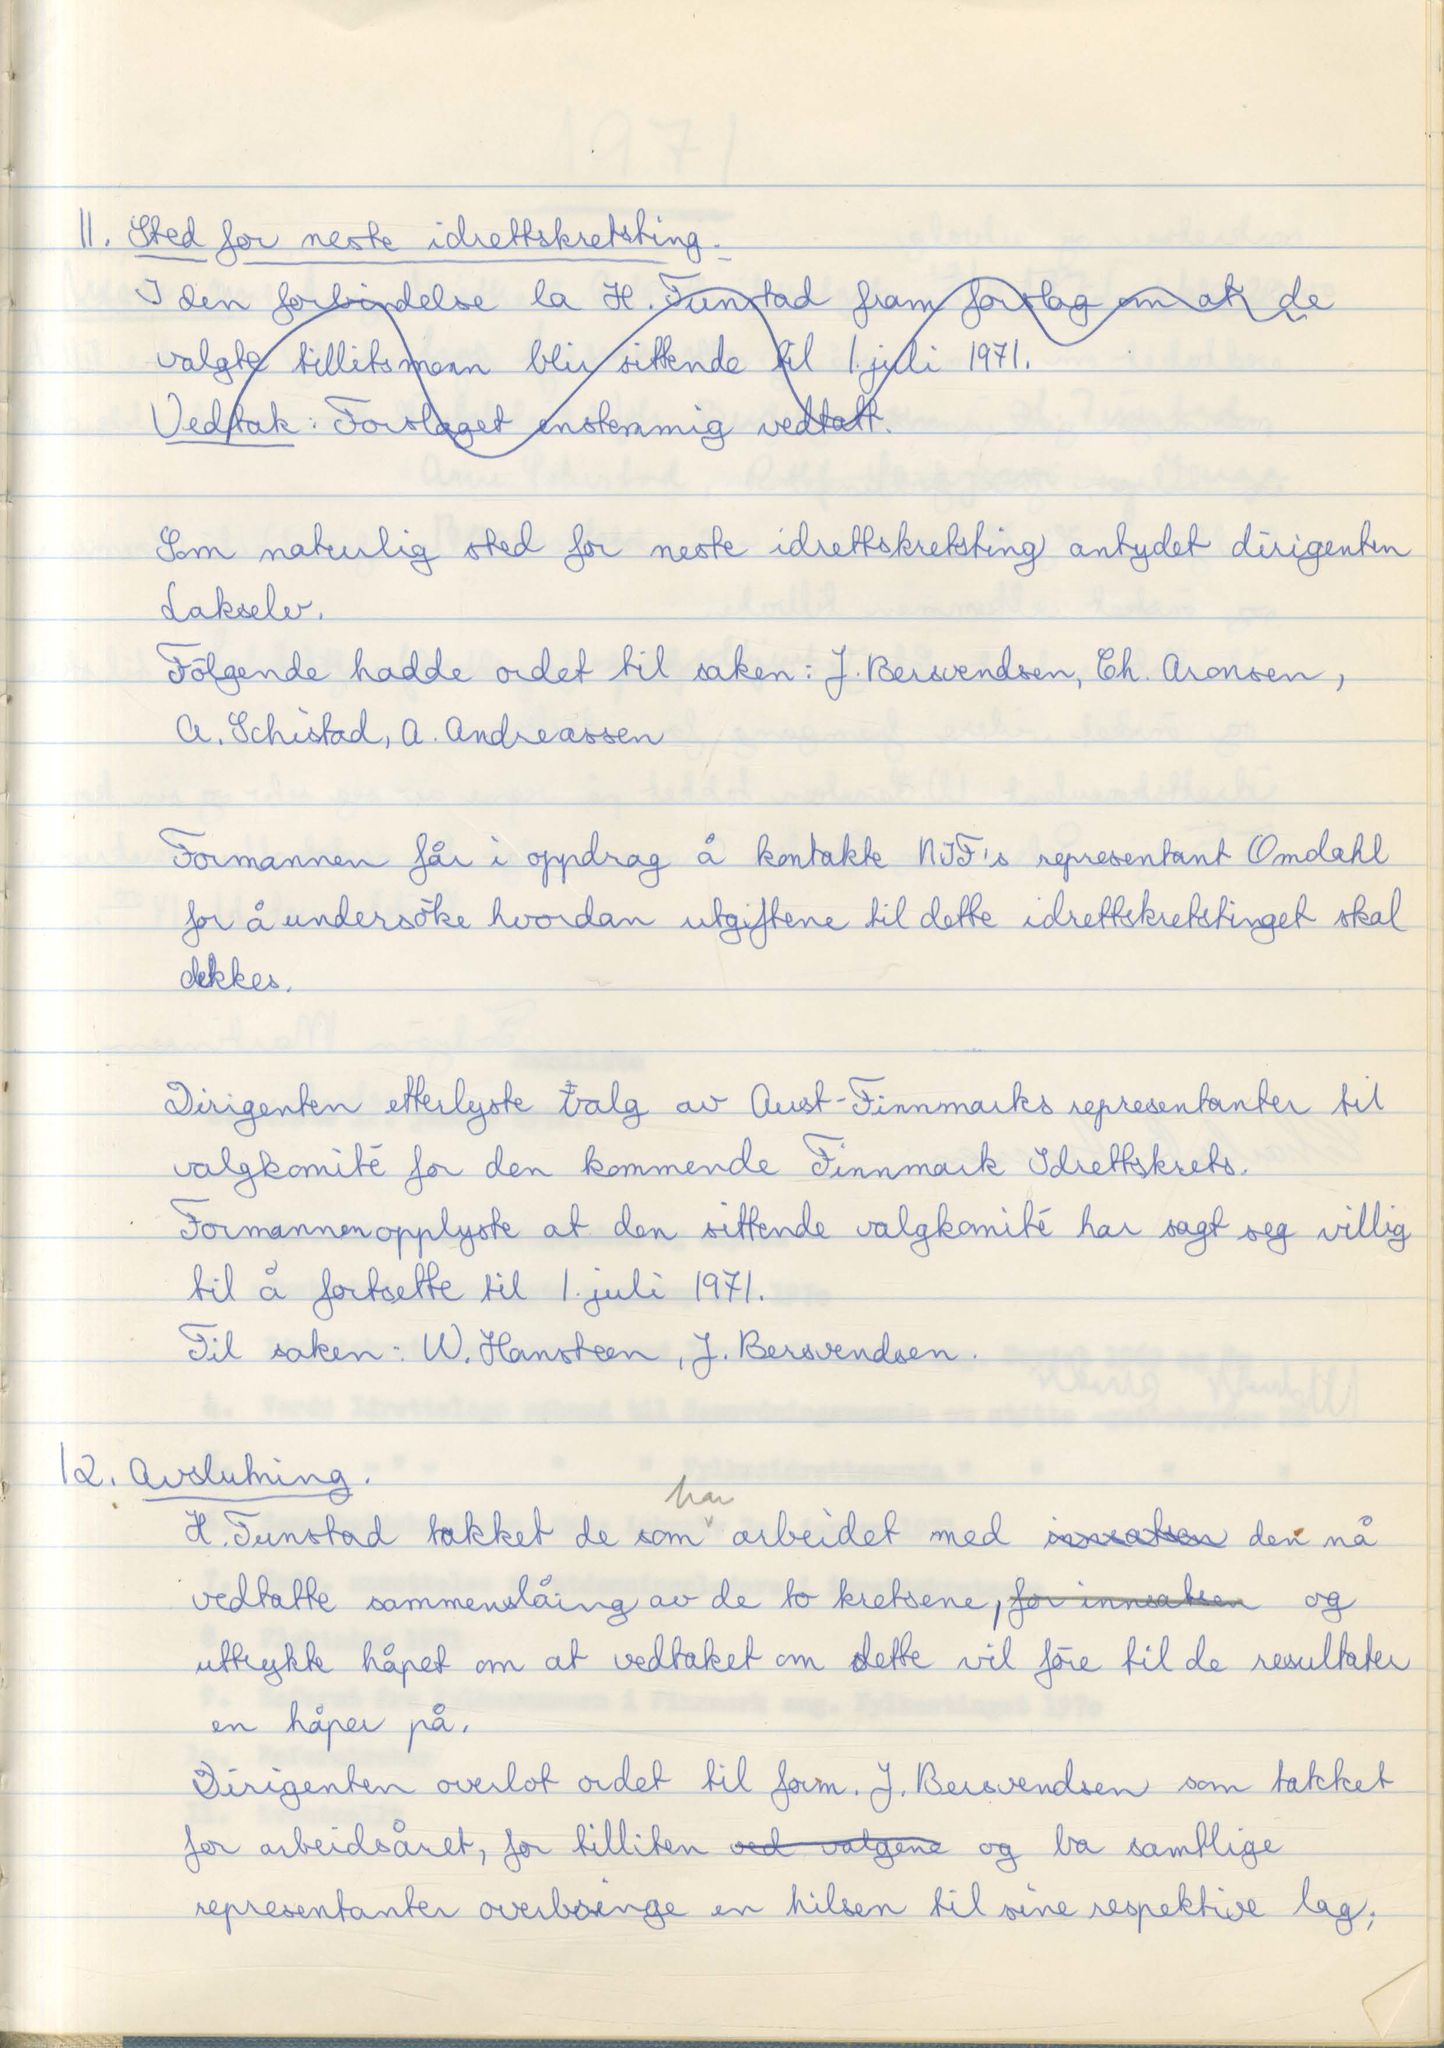 11. Sted for neste idrettskretsting.
I den forbindelse la H. Tunstad fram forslag om at de
valgte tillitsmenn blir sittende til 1. juli 1971.
Vedtak: Forslaget enstemmig vedtatt.
Som naturlig sted for neste idrettskretsting antydet dirigenten
Lakselv.
Følgende hadde ordet til saken: J. Bersvendsen, Ch. Aronsen,
A. Schistad, A. Andreassen
Formannen får i oppdrag å kontakte NIF's representant Omdahl
for å undersöke hvordan utgiftene til dette idrettskretstinget skal
dekkes.
Dirigenten etterlyste valg av Aust-Finnmarks representanter til
valgkomité for den kommende Finnmark Idrettskrets.
Formannen opplyste at den sittende valgkomité har sagt seg villig
til å fortsette til 1. juli 1971.
Til saken: W. Hansteen, J. Bersvendsen.
12. Avslutning.
H. Tunstad takket de som har arbeidet med innsatsen den nå
vedtatte sammenslåing av de to kretsene, for innsatsen og
uttrykte håpet om at vedtaket om dette vil føre til de resultater
en håper på.
Dirigenten overlot ordet til form. J. Bersvendsen som takket
for arbeidsåret, for tilliten ved valgene og ba samtlige
representanter overbringe en hilsen til sine respektive lag,